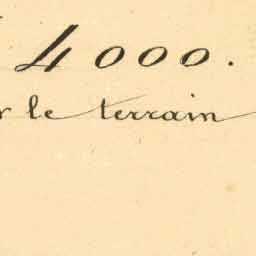 4000.
le terrain